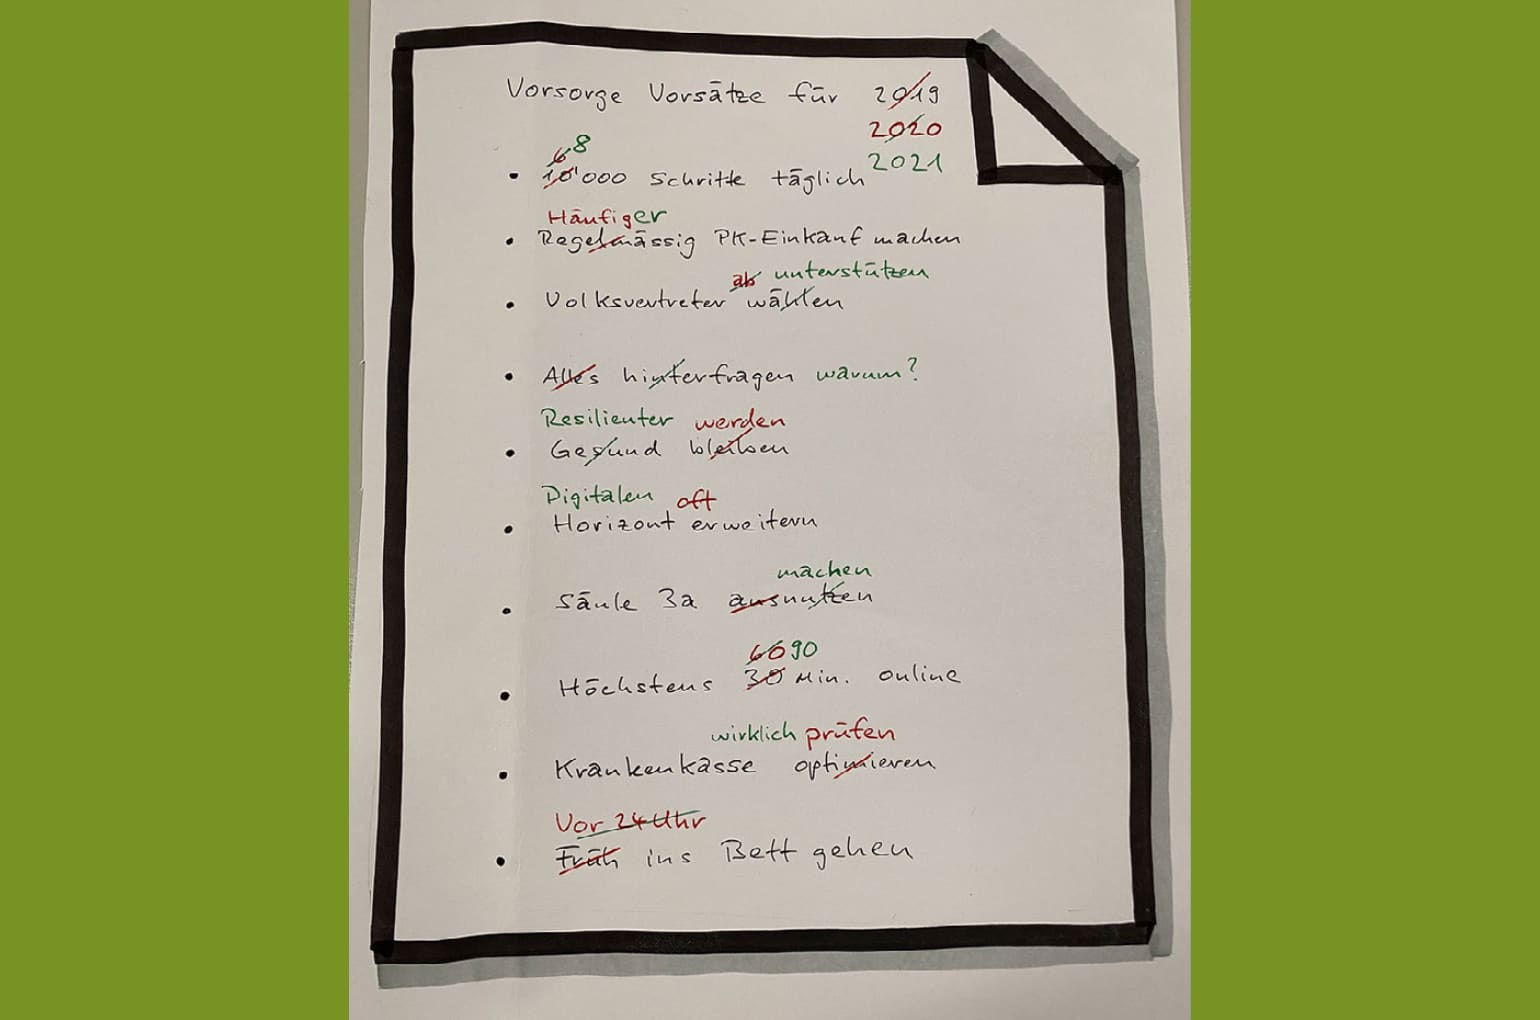 Vorsorge Vorsätze für 2019
2020
2021
6 8
• 10'000 Schritte täglich
Häufiger
• Regelmässig PK-Einkauf machen
ab unterstützen
• Volksvertreter wählen
• Alles hinterfragen warum?
Resilienter werden
• Gesund bleiben
Digitalen oft
• Horizont erweitern
machen
• Säule 3a ausnutzen
60 90
• Höchstens 30 Min. online
wirklich prüfen
• Krankenkasse optimieren
Vor 24 Uhr
• Früh ins Bett gehen